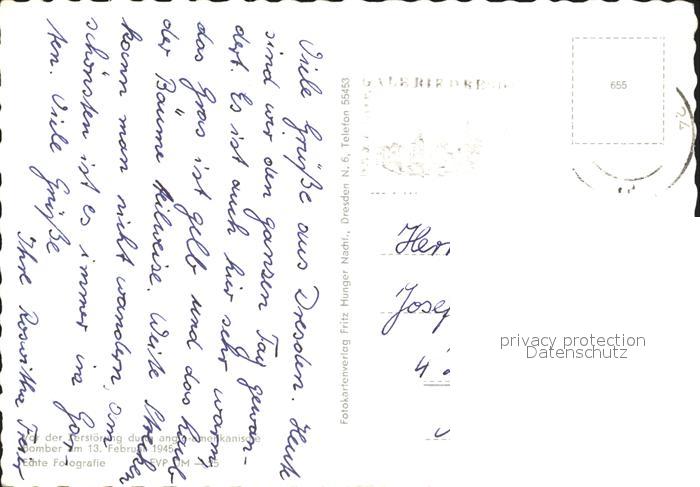 Viele Grüße aus Dresden. Heute
sind wir den ganzen Tag gewan-
dert. Es ist auch hier sehr warm,
das Gras ist gelb und das Laub
der Bäume teilweise. Weite Strecken
kann man nicht wandern, am
schönsten ist es immer im Gar-
ten. Viele Grüße
Ihre Roswitha
Vor der Zerstörung durch anglo-amerikanische
Bomber am 13. Februar 1945
Echte Fotografie
Fotokartenverlag Fritz Hunger Nachf., Dresden N. 6, Telefon 55453
655
Herr
Josef
privacy protection
Datenschutz